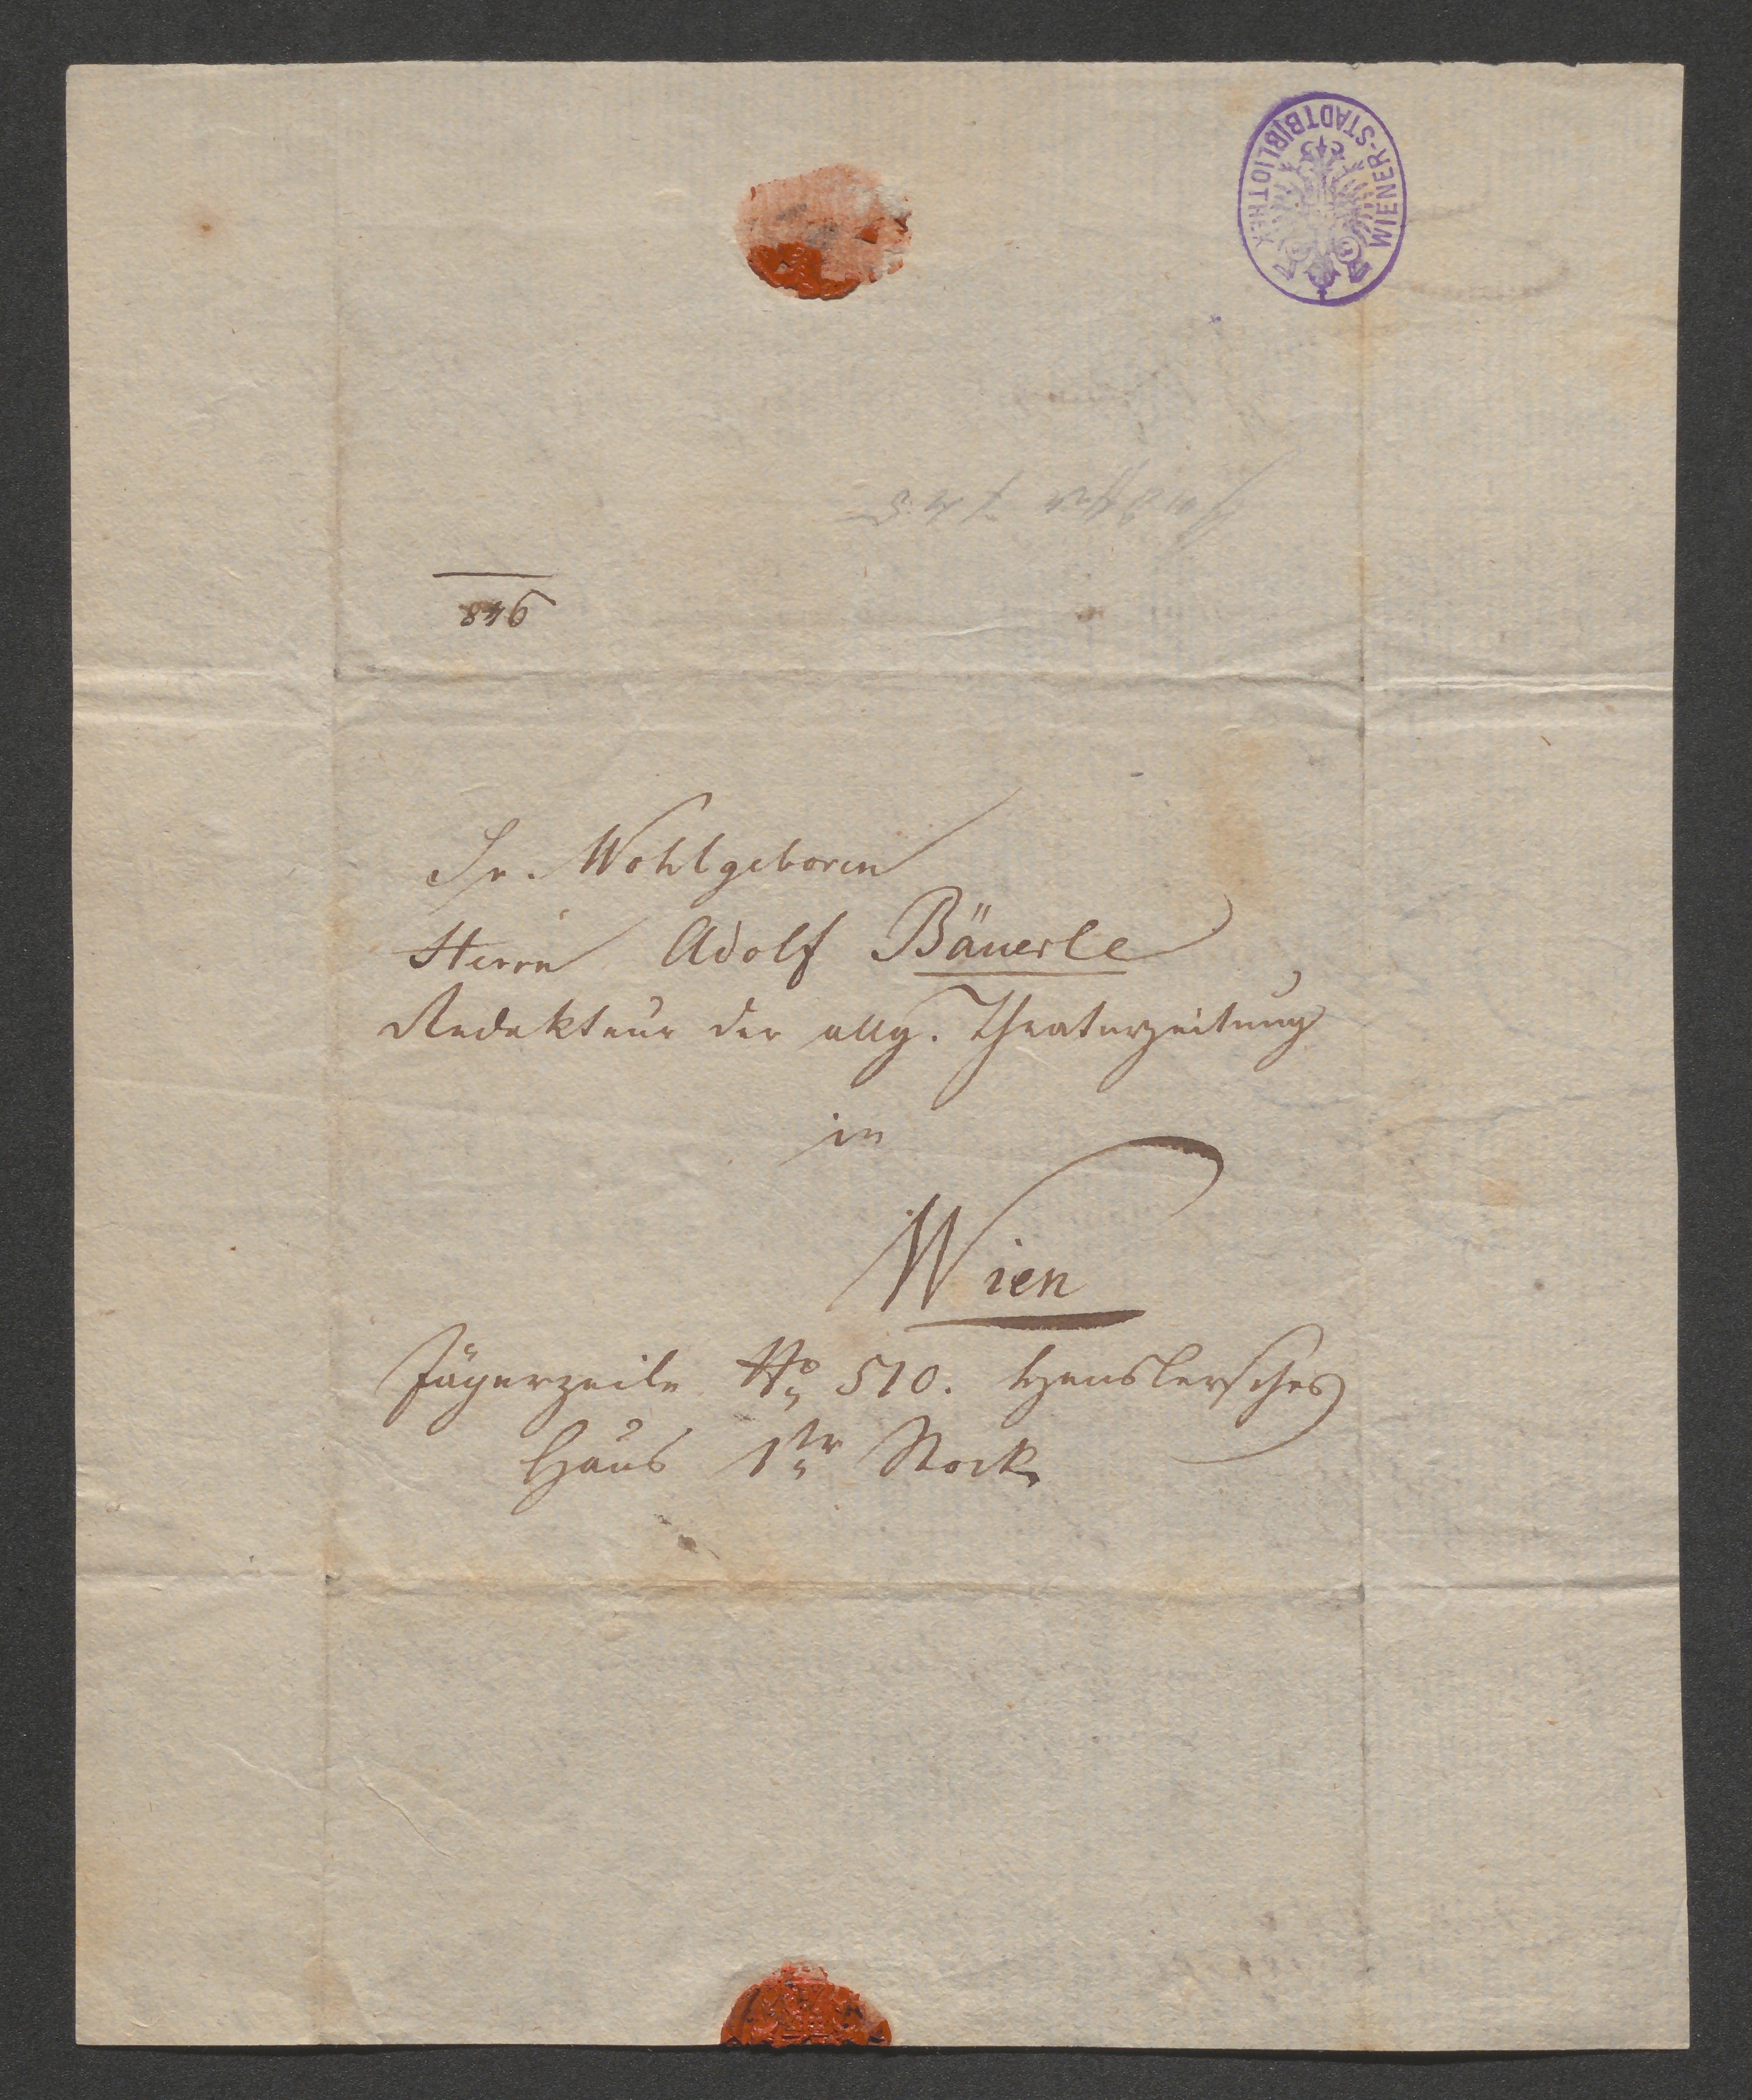 WIENER-STADTBIBLIOTHEK
846
Sr. Wohlgeboren
Herrn Adolf Bäuerle
Redakteur der allg. Theaterzeitung
in
Wien
Jägerzeile No 510. Henslersches
Haus 1ter Stock